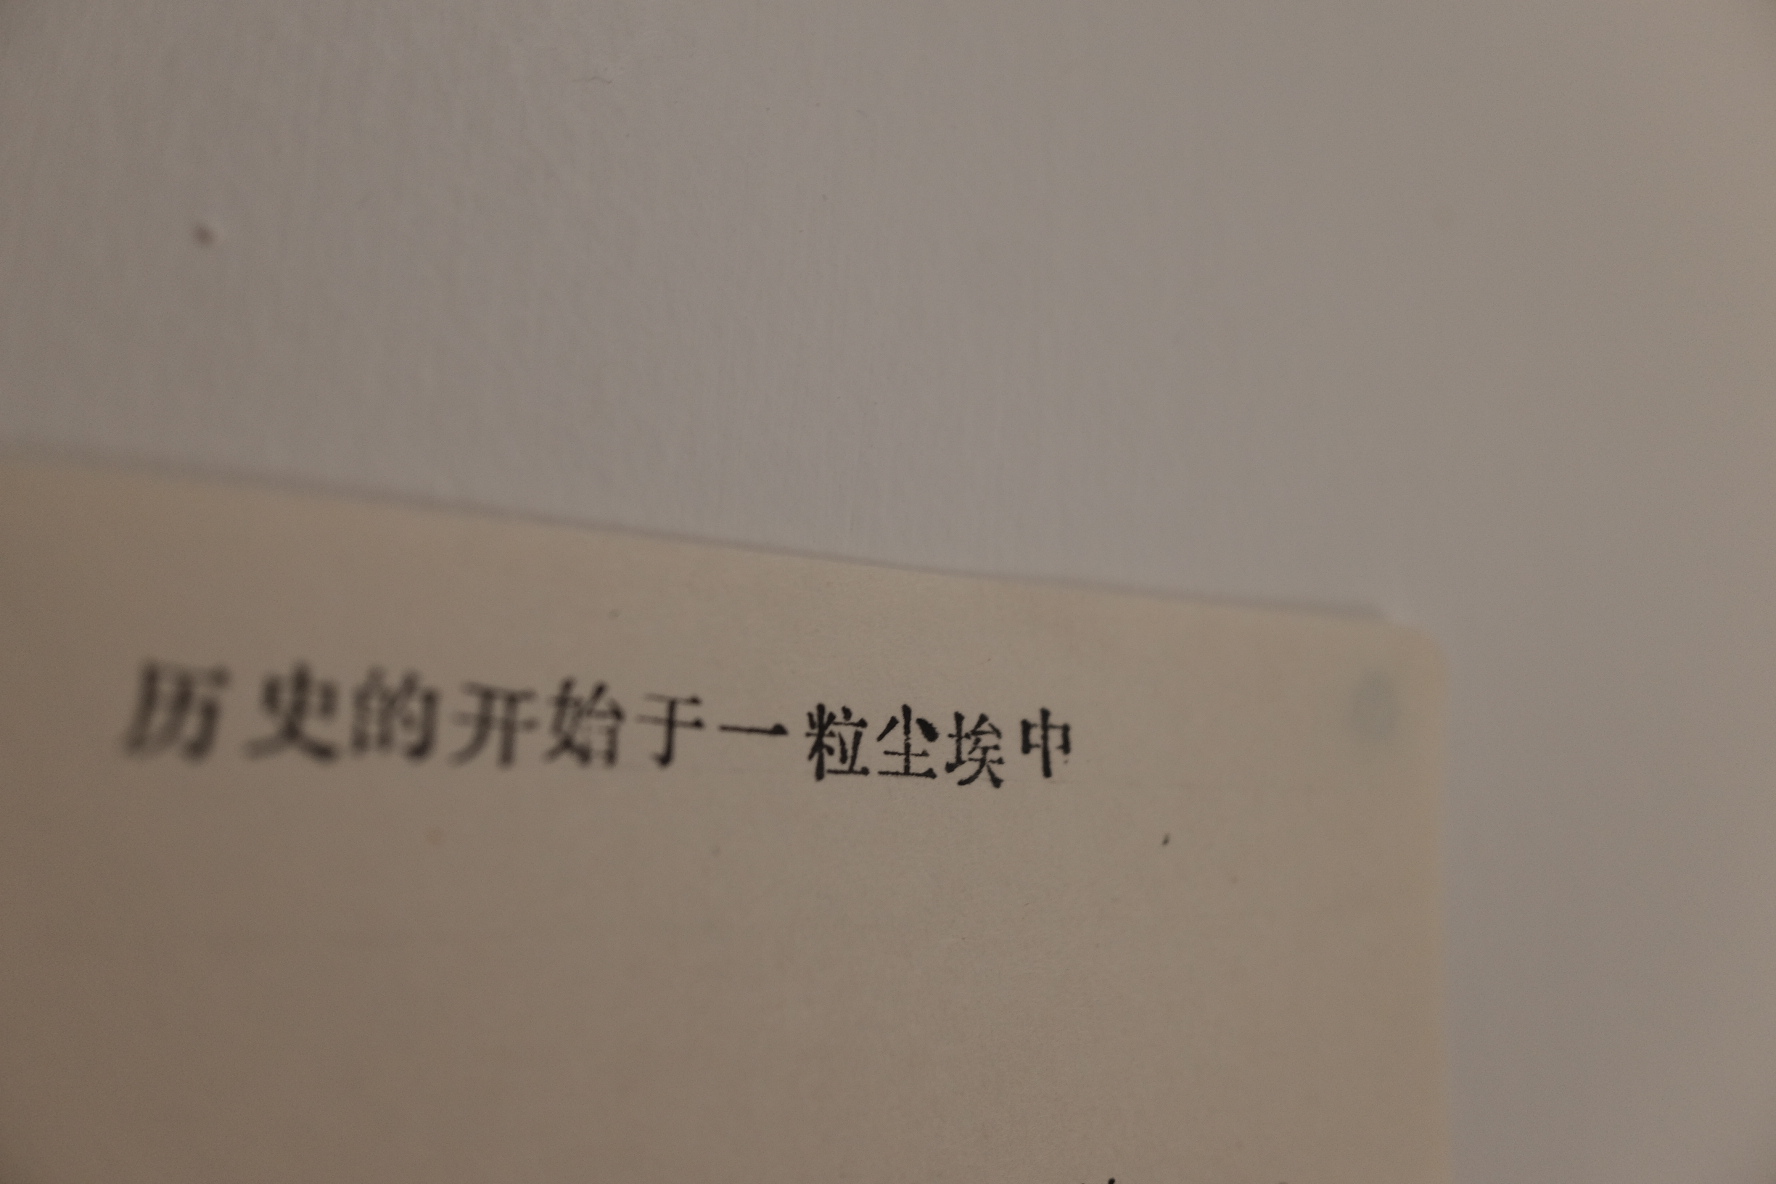 历史的开始于一粒尘埃中